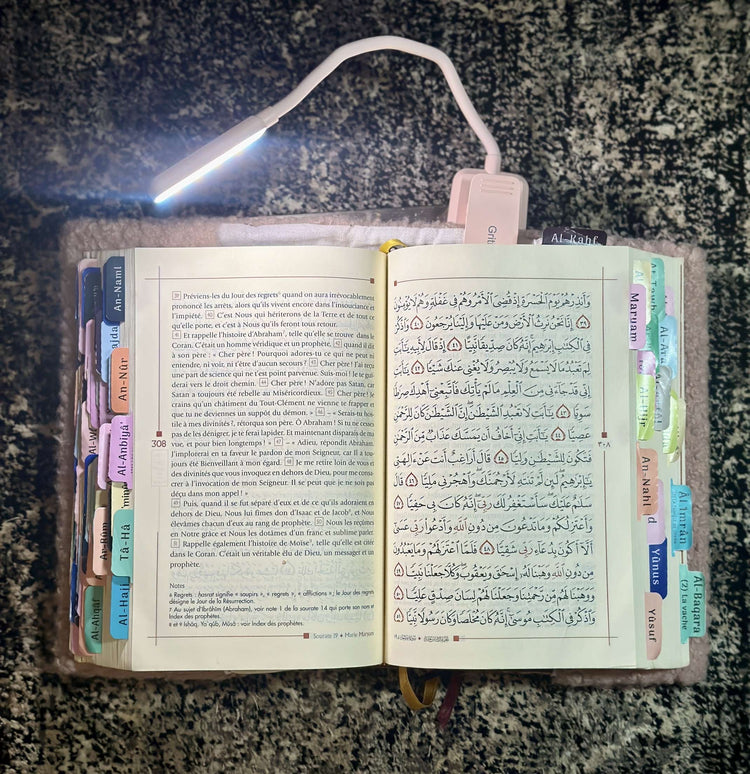 Al-Kahf
An-Naml
An-Nûr
Al-Anbiyâ'
Tâ-Hâ
Ar-Rûm
Al-Haj
39 Préviens-les du Jour des regrets⁶ quand on aura irrévocablement
prononcé les arrêts, alors qu'ils vivent encore dans l'insouciance et
l'impiété. 40 C'est Nous qui hériterons de la Terre et de tout ce
qu'elle porte, et c'est à Nous qu'ils feront tous retour.
41 Et rappelle l'histoire d'Abraham⁷, telle qu'elle se trouve dans le
Coran. C'était un homme véridique et un prophète, 42 quand il dit
à son père : « Cher père ! Pourquoi adores-tu ce qui ne peut ni
entendre, ni voir, ni t'être d'aucun secours ? 43 Cher père ! J'ai reçu
une part de science qui ne t'est point parvenue. Suis-moi ! Je te guiderai
derai vers le droit chemin. 44 Cher père ! N'adore pas Satan, car
Satan a toujours été rebelle au Miséricordieux. 45 Cher père ! Je
crains qu'un châtiment du Tout-Clément ne vienne te frapper et
que tu ne deviennes un suppôt du démon. » 46 – « Serais-tu hostile
tile à mes divinités ?, rétorqua son père. Ô Abraham ! Si tu ne cesses
pas de les dénigrer, je te ferai lapider. Et maintenant disparais de ma
vue, et pour bien longtemps ! » 47 – « Adieu, répondit Abraham.
J'implorerai en ta faveur le pardon de mon Seigneur, car Il a toujours
jours été Bienveillant à mon égard. 48 Je me retire loin de vous et
des divinités que vous invoquez en dehors de Dieu, pour me consacrer
crer à l'invocation de mon Seigneur. Il se peut que je ne sois pas
déçu dans mon appel ! »
49 Puis, quand il se fut séparé d'eux et de ce qu'ils adoraient en
dehors de Dieu, Nous lui fîmes don d'Isaac et de Jacob⁸, et Nous
élevâmes chacun d'eux au rang de prophète. 50 Nous les reçûmes
en Notre grâce et Nous les dotâmes d'un franc et sublime parler.
51 Rappelle également l'histoire de Moïse⁹, telle qu'elle est citée
dans le Coran. C'était un véritable élu de Dieu, un messager et un
prophète.
308
Notes
6 Regrets : hasrat signifie « soupirs », « regrets », « afflictions » ; le Jour des regrets
désigne le Jour de la Résurrection.
7 Au sujet d'Ibrâhîm (Abraham), voir note 1 de la sourate 14 qui porte son nom et
Index des prophètes.
8 et 9 Ishâq, Ya'qûb, Mûsâ : voir Index des prophètes.
Sourate 19 • Marie Maryam
وَأَنذِرْهُمْ يَوْمَ ٱلْحَسْرَةِ إِذْ قُضِيَ ٱلْأَمْرُ وَهُمْ فِي غَفْلَةٍ وَهُمْ لَا يُؤْمِنُونَ
٣٩ إِنَّا نَحْنُ نَرِثُ ٱلْأَرْضَ وَمَنْ عَلَيْهَا وَإِلَيْنَا يُرْجَعُونَ ٤٠ وَٱذْكُرْ
فِي ٱلْكِتَٰبِ إِبْرَٰهِيمَ إِنَّهُ كَانَ صِدِّيقًا نَّبِيًّا ٤١ إِذْ قَالَ لِأَبِيهِ يَٰٓأَبَتِ
لِمَ تَعْبُدُ مَا لَا يَسْمَعُ وَلَا يُبْصِرُ وَلَا يُغْنِي عَنكَ شَيْـًٔا ٤٢ يَٰٓأَبَتِ
إِنِّي قَدْ جَآءَنِي مِنَ ٱلْعِلْمِ مَا لَمْ يَأْتِكَ فَٱتَّبِعْنِيٓ أَهْدِكَ صِرَٰطًا
سَوِيًّا ٤٣ يَٰٓأَبَتِ لَا تَعْبُدِ ٱلشَّيْطَٰنَ إِنَّ ٱلشَّيْطَٰنَ كَانَ لِلرَّحْمَٰنِ
عَصِيًّا ٤٤ يَٰٓأَبَتِ إِنِّيٓ أَخَافُ أَن يَمَسَّكَ عَذَابٌ مِّنَ ٱلرَّحْمَٰنِ
فَتَكُونَ لِلشَّيْطَٰنِ وَلِيًّا ٤٥ قَالَ أَرَاغِبٌ أَنتَ عَنْ ءَالِهَتِي
يَٰٓإِبْرَٰهِيمُ لَئِن لَّمْ تَنتَهِ لَأَرْجُمَنَّكَ وَٱهْجُرْنِي مَلِيًّا ٤٦ قَالَ
سَلَٰمٌ عَلَيْكَ سَأَسْتَغْفِرُ لَكَ رَبِّيٓ إِنَّهُ كَانَ بِي حَفِيًّا ٤٧
وَأَعْتَزِلُكُمْ وَمَا تَدْعُونَ مِن دُونِ ٱللَّهِ وَأَدْعُوا۟ رَبِّي عَسَىٰٓ
أَلَّآ أَكُونَ بِدُعَآءِ رَبِّي شَقِيًّا ٤٨ فَلَمَّا ٱعْتَزَلَهُمْ وَمَا يَعْبُدُونَ
مِن دُونِ ٱللَّهِ وَهَبْنَا لَهُۥٓ إِسْحَٰقَ وَيَعْقُوبَ وَكُلًّا جَعَلْنَا نَبِيًّا ٤٩
وَوَهَبْنَا لَهُم مِّن رَّحْمَتِنَا وَجَعَلْنَا لَهُمْ لِسَانَ صِدْقٍ عَلِيًّا ٥٠
وَٱذْكُرْ فِي ٱلْكِتَٰبِ مُوسَىٰٓ إِنَّهُ كَانَ مُخْلَصًا وَكَانَ رَسُولًا نَّبِيًّا ٥١
٣٠٨
Maryam
Al-Hijr
An-Nahl
Âl 'Imrân
Yûnus
Yûsuf
Al-Baqara
(2) La vache